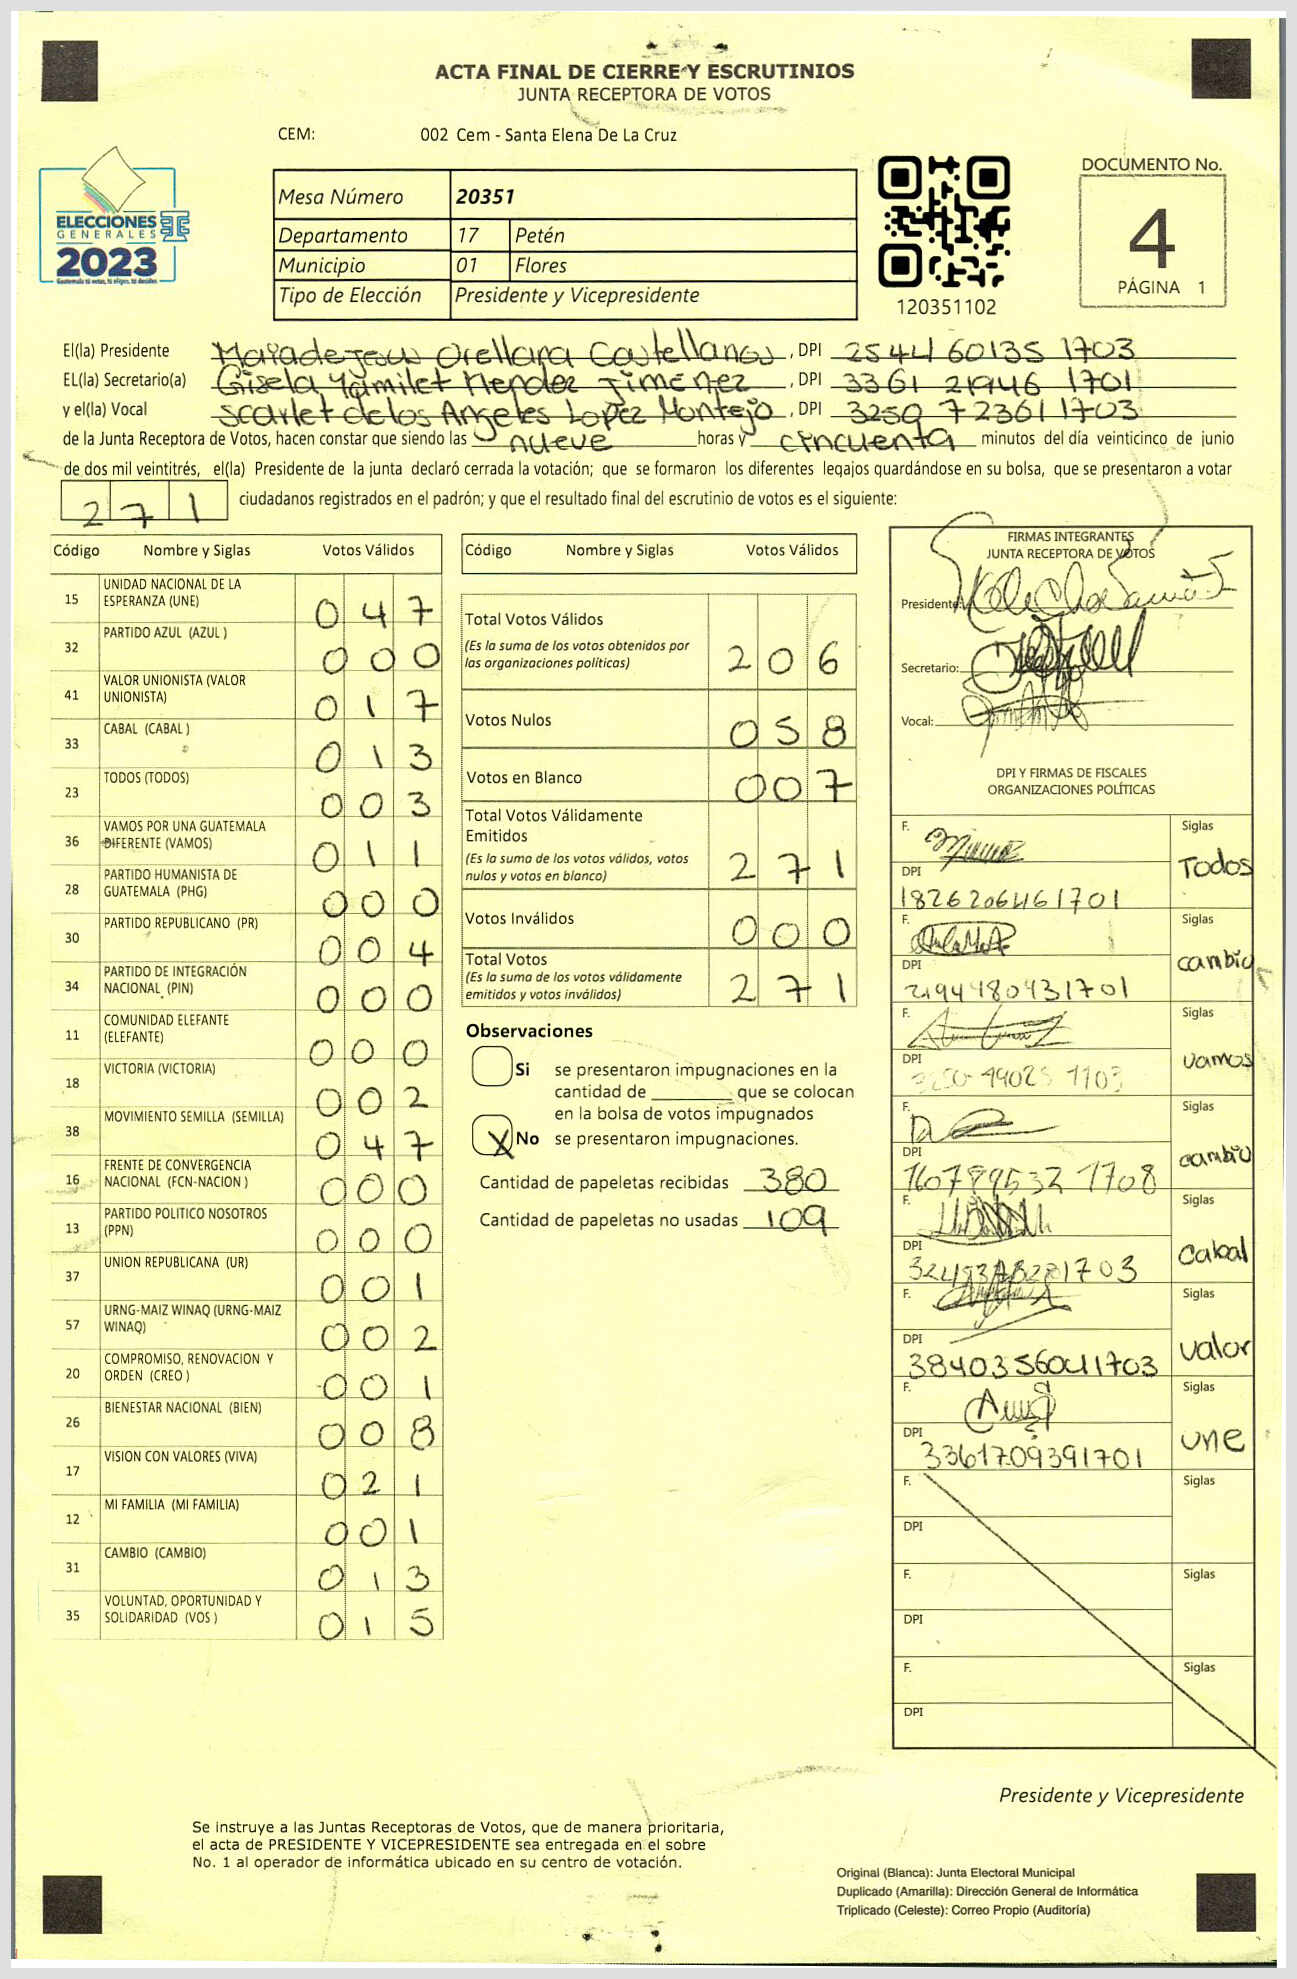 ACTA FINAL DE CIERRE Y ESCRUTINIOS
JUNTA RECEPTORA DE VOTOS
CEM: 002 Cem - Santa Elena De La Cruz
ELECCIONES
GENERALES
2023
Guatemala tú votas, tú eliges, tú decides
Mesa Número 20351
Departamento 17 Petén
Municipio 01 Flores
Tipo de Elección Presidente y Vicepresidente
120351102
DOCUMENTO No.
4
PÁGINA 1
El(la) Presidente Maria de jesus Orellana Castellanos, DPI 2544 60135 1703
EL(la) Secretario(a) Gisela Yamilet Mendez Jimenez, DPI 3361 21946 1701
y el(la) Vocal Scarlet de los Angeles Lopez Montejo, DPI 3250 72361 1703
de la Junta Receptora de Votos, hacen constar que siendo las nueve horas y cincuenta minutos del día veinticinco de junio
de dos mil veintitrés, el(la) Presidente de la junta declaró cerrada la votación; que se formaron los diferentes legajos guardándose en su bolsa, que se presentaron a votar
271 ciudadanos registrados en el padrón; y que el resultado final del escrutinio de votos es el siguiente:
Código Nombre y Siglas Votos Válidos
15 UNIDAD NACIONAL DE LA ESPERANZA (UNE) 047
32 PARTIDO AZUL (AZUL ) 000
41 VALOR UNIONISTA (VALOR UNIONISTA) 017
33 CABAL (CABAL ) 013
23 TODOS (TODOS) 003
36 VAMOS POR UNA GUATEMALA DIFERENTE (VAMOS) 011
28 PARTIDO HUMANISTA DE GUATEMALA (PHG) 000
30 PARTIDO REPUBLICANO (PR) 004
34 PARTIDO DE INTEGRACIÓN NACIONAL (PIN) 000
11 COMUNIDAD ELEFANTE (ELEFANTE) 000
18 VICTORIA (VICTORIA) 002
38 MOVIMIENTO SEMILLA (SEMILLA) 047
16 FRENTE DE CONVERGENCIA NACIONAL (FCN-NACION ) 000
13 PARTIDO POLITICO NOSOTROS (PPN) 000
37 UNION REPUBLICANA (UR) 001
57 URNG-MAIZ WINAQ (URNG-MAIZ WINAQ) 002
20 COMPROMISO, RENOVACION Y ORDEN (CREO ) 001
26 BIENESTAR NACIONAL (BIEN) 008
17 VISION CON VALORES (VIVA) 021
12 MI FAMILIA (MI FAMILIA) 001
31 CAMBIO (CAMBIO) 013
35 VOLUNTAD, OPORTUNIDAD Y SOLIDARIDAD (VOS ) 015
Código Nombre y Siglas Votos Válidos
Total Votos Válidos 206
(Es la suma de los votos obtenidos por
las organizaciones políticas)
Votos Nulos 058
Votos en Blanco 007
Total Votos Válidamente
Emitidos 271
(Es la suma de los votos válidos, votos
nulos y votos en blanco)
Votos Inválidos 000
Total Votos 271
(Es la suma de los votos válidamente
emitidos y votos inválidos)
Observaciones
Si se presentaron impugnaciones en la
cantidad de ________ que se colocan
en la bolsa de votos impugnados
X No se presentaron impugnaciones.
Cantidad de papeletas recibidas 380
Cantidad de papeletas no usadas 109
FIRMAS INTEGRANTES
JUNTA RECEPTORA DE VOTOS
Presidente:
Secretario:
Vocal:
DPI Y FIRMAS DE FISCALES
ORGANIZACIONES POLÍTICAS
F. Siglas
DPI Todos
1826206461701
F. Siglas
DPI cambio
2194480431701
F. Siglas
DPI vamos
F. Siglas
DPI cambio
160789532 1708
F. Siglas
DPI Cabal
F. Siglas
DPI valor
3840356041703
F. Siglas
DPI une
3361709391701
F. Siglas
DPI
F. Siglas
DPI
F. Siglas
DPI
Presidente y Vicepresidente
Se instruye a las Juntas Receptoras de Votos, que de manera prioritaria,
el acta de PRESIDENTE Y VICEPRESIDENTE sea entregada en el sobre
No. 1 al operador de informática ubicado en su centro de votación.
Original (Blanca): Junta Electoral Municipal
Duplicado (Amarilla): Dirección General de Informática
Triplicado (Celeste): Correo Propio (Auditoría)